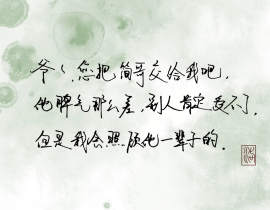 爷爷,您把简哥交给我吧,
他脾气那么差,别人肯定受不了,
但是我会照顾他一辈子的。